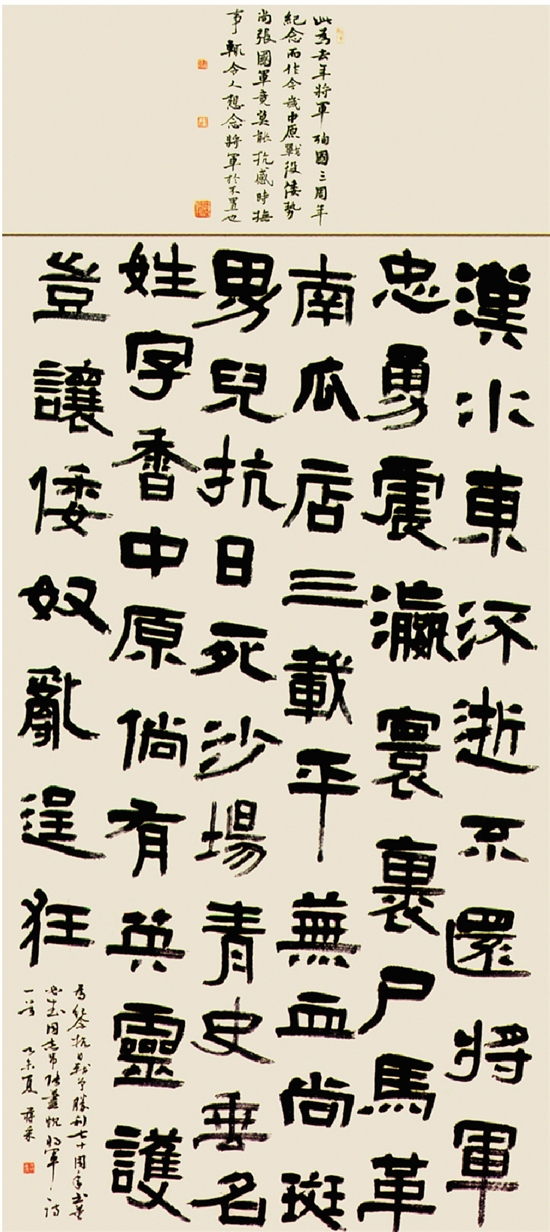 此為去年將軍殉國三周年
紀念而作今歲中原戰役倭勢
尚張國軍竟莫能抗感時撫
事輒令人想念將軍於不置也
漢水東流逝不還將軍
忠勇震瀛寰裹尸馬革
南瓜店三載平蕪血尚斑
男兒抗日死沙場青史垂名
姓字香中原倘有英靈護
豈讓倭奴亂逞狂
為紀念抗日戰爭勝利七十周年書董
必武同志吊張藎忱將軍之詩
一首 乙未夏